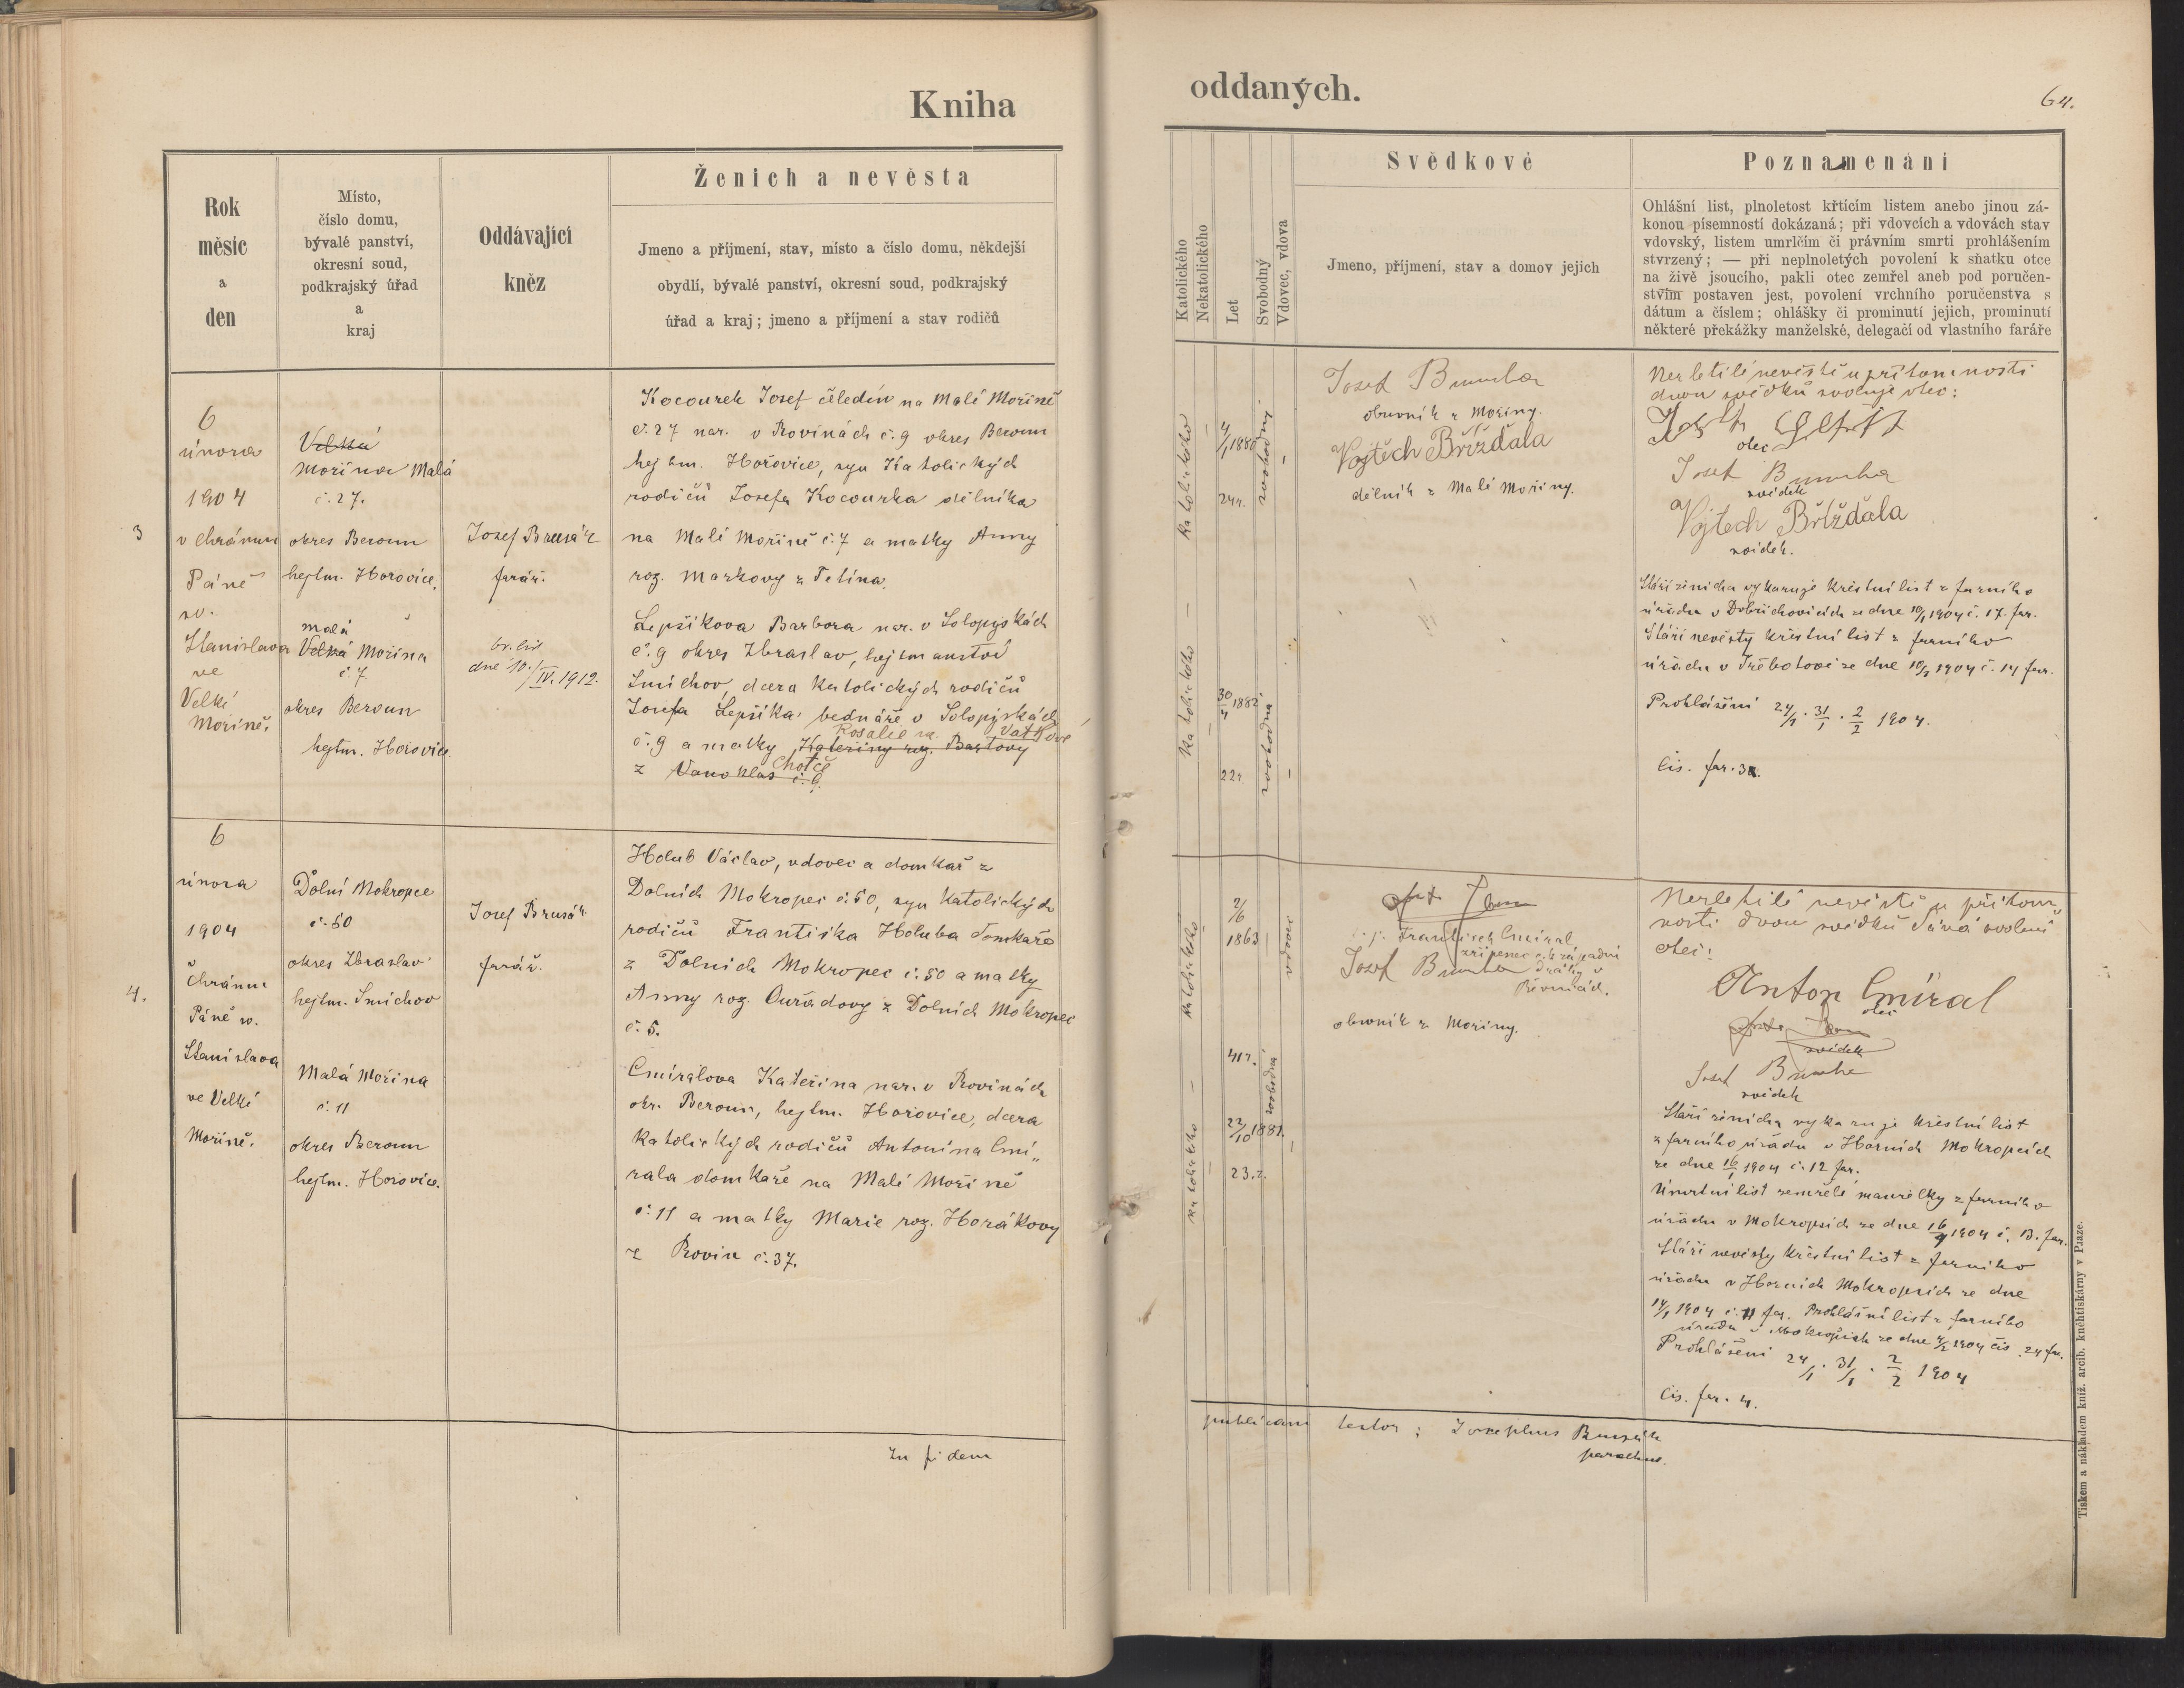 Kniha
Rok
měsíc
a
den
Místo,
číslo domu,
bývalé panství,
okresní soud,
podkrajský úřad
a
kraj
Oddávající
kněz
Ženich a nevěsta
Jmeno a příjmení, stav, místo a číslo domu, někdejší
obydlí, bývalé panství, okresní soud, podkrajský
úřad a kraj; jmeno a příjmení a stav rodičů
3
6
února
1904
v chrámu
Páně
sv.
Stanislava
ve
Velké
Mořině.
Velká
Mořina Malá
č. 27.
okres Beroun
hejtm. Hořovice.
malá
Velká Mořina
č. 7
okres Beroun
hejtm. Hořovice.
Josef Brusák
farář.
dne 10./IV. 1912.
Kocourek Josef čeledín na Malé Mořině
č. 27 nar. v Rovinách č. 9 okres Beroun
hejtm. Hořovice, syn katolických
rodičů Josefa Kocourka dělníka
na Malé Mořině č. 7 a matky Anny
roz. Markovy z Tetína.
Lepšíkova Barbora nar. v Solopyskách
č. 9 okres Zbraslav, hejtmanství
Smíchov, dcera katolických rodičů
Josefa Lepšíka bednáře v Solopyskách
Rosalie roz. Vaťkové
č. 9 a matky Kateřiny roz. Bartovy
Choteč
z
4.
6
února
1904
chrámu
Páně sv.
Stanislava
ve Velké
Mořině.
Dolní Mokropce
č. 50
okres Zbraslav
hejtm. Smíchov
Malá Mořina
č. 11
okres Beroun
hejtm. Hořovice.
Josef Brusák
farář.
Holub Václav, vdovec a domkař z
Dolních Mokropec č. 50, syn katolických
rodičů Františka Holuba domkaře
z Dolních Mokropec č. 50 a matky
Anny roz. Ouřadovy z Dolních Mokropec
č. 5.
Cmíralova Kateřina nar. v Rovinách
okr. Beroun, hejtm. Hořovice, dcera
katolických rodičů Antonína Cmí„
rala domkaře na Malé Mořině
č. 11 a matky Marie roz. Horákovy
z Rovin č. 37.
In fidem
oddaných.
64.
Katolického
Nekatolického
Let
Svobodný
Vdovec, vdova
Svědkové
Jmeno, příjmení, stav a domov jejich
Poznamenání
Ohlášní list, plnoletost křticím listem anebo jinou zá-
konou písemností dokázaná; při vdovcích a vdovách stav
vdovský, listem umrlčím či právním smrti prohlášením
stvrzený; — při neplnoletých povolení k sňatku otce
na živě jsoucího, pakli otec zemřel aneb pod poručen-
stvím postaven jest, povolení vrchního poručenstva s
dátum a číslem; ohlášky či prominutí jejich, prominutí
některé překážky manželské, delegačí od vlastního faráře
katolického
4/1 1880
24 r.
svobodný
katolického
30/4 1882
22 r.
svobodná
Josef Bumba
obuvník z Mořiny.
Vojtěch Břížďala
dělník z Malé Mořiny.
Nezletilé nevěstě u přítomnosti
dvou svědků svoluje otec:
otec
Josef Bumba
svědek
Vojtech Břížďala
svědek.
Stáří ženicha vykazuje křestní list z farního
úřadu v Dobřichovicích ze dne 10/1 1904 č. 17. far.
Stáří nevěsty křestní list z farního
úřadu v Třebotově ze dne 10/1 1904 č. 14 far.
Prohlášení 24/1 . 31/1 . 2/2 1904.
čís. far. 3.
katolického
2/6
1863
41 r.
vdovec
katolického
22/10 1881.
23. r.
svobodná
Frantisek Cmíral
zřízenec c. k. západní
dráhy v
Řevnicích.
Josef Bumba
obuvník z Mořiny.
Nezletilé nevěstě u přítom
nosti dvou svědků dává svolení
otec:
Anton Cmíral
otec
svědek
Josef Bumba
svědek
Stáří ženicha vykazuje křestní list
z farního úřadu v Horních Mokropcích
ze dne 16/1 1904 č. 12 far.
Úmrtní list zemřelé manželky z farního
úřadu v Mokropsích ze dne 16/1 1904 č. 13. far.
Stáří nevěsty křestní list z farního
úřadu v Horních Mokropsích ze dne
14/1 1904 č. 11 far. Prohlášní list z farního
úřadu v Mokropsích ze dne 4/2 1904 čís. 24 far.
Prohlášení 24/1 . 31/1 . 2/2 1904
čís. far. 4.
publicam testor: Josephus Brusák
parochus.
Tiskem a nákladem kniž. arcib. knihtiskárny v Praze.